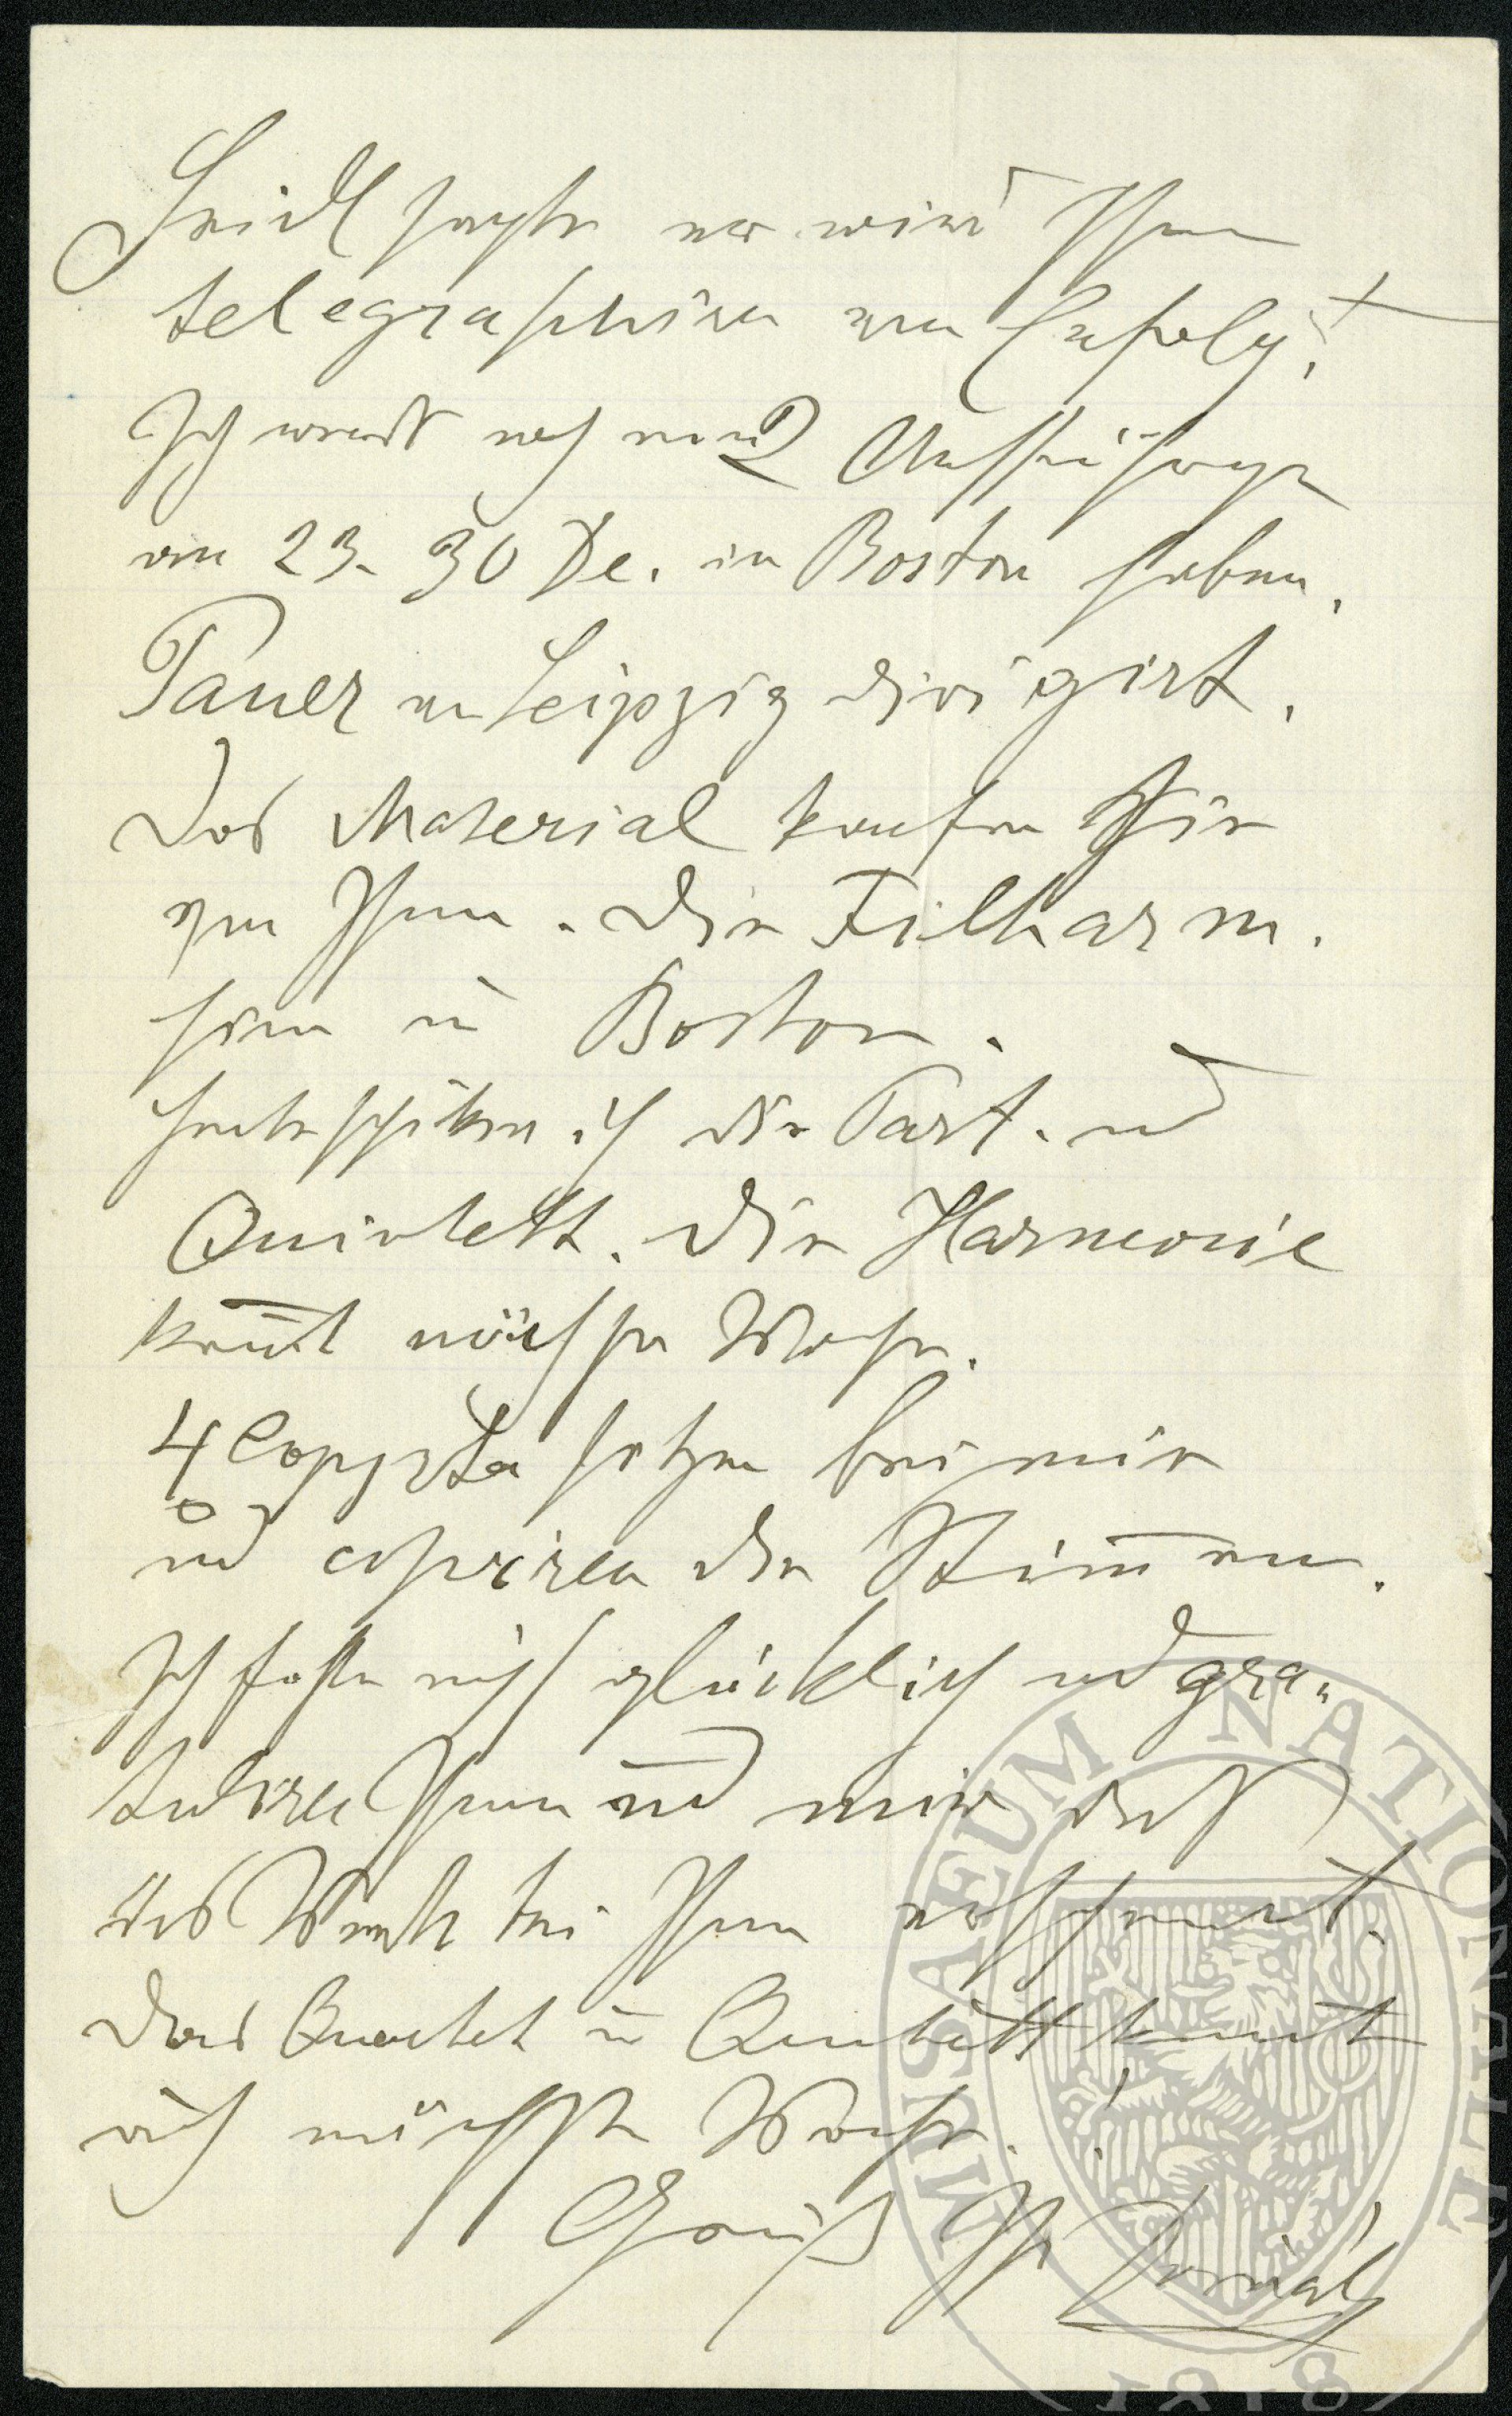 Seidl sagte er wird Ihnen
telegraphiren den Erfolg!
Ich werde noch 2 Aufführungen
am 23. 30 De. in Boston haben.
Pauer in Leipzig dirigirt.
Das Material kaufen Sie
von Ihnen. Die Filharm.
hier u Boston.
Heute schicken ich die Part. und
Quintett. Die Harmonie
kom̄t nächste Woche.
4 Copysta sitzen bei mir
und copiren die Stim̄en.
Ich fühle mich glücklich und gra-
tulire Ihnen und mir daß
das Werk bei Ihnen erscheint.
Das Quartet u Quintett kom̄t
auch nächste Woche.
Gruß Ihr Dvořák
MUSAEUM NATIONALE
1818